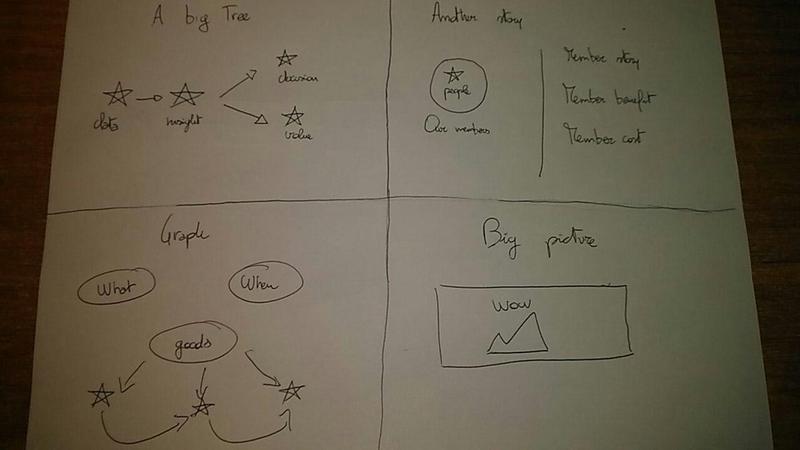 A big Tree
data
insight
decision
value
Another story
people
Our members
Member story
Member benefit
Member cost
Graph
What
When
goods
Big picture
WOW